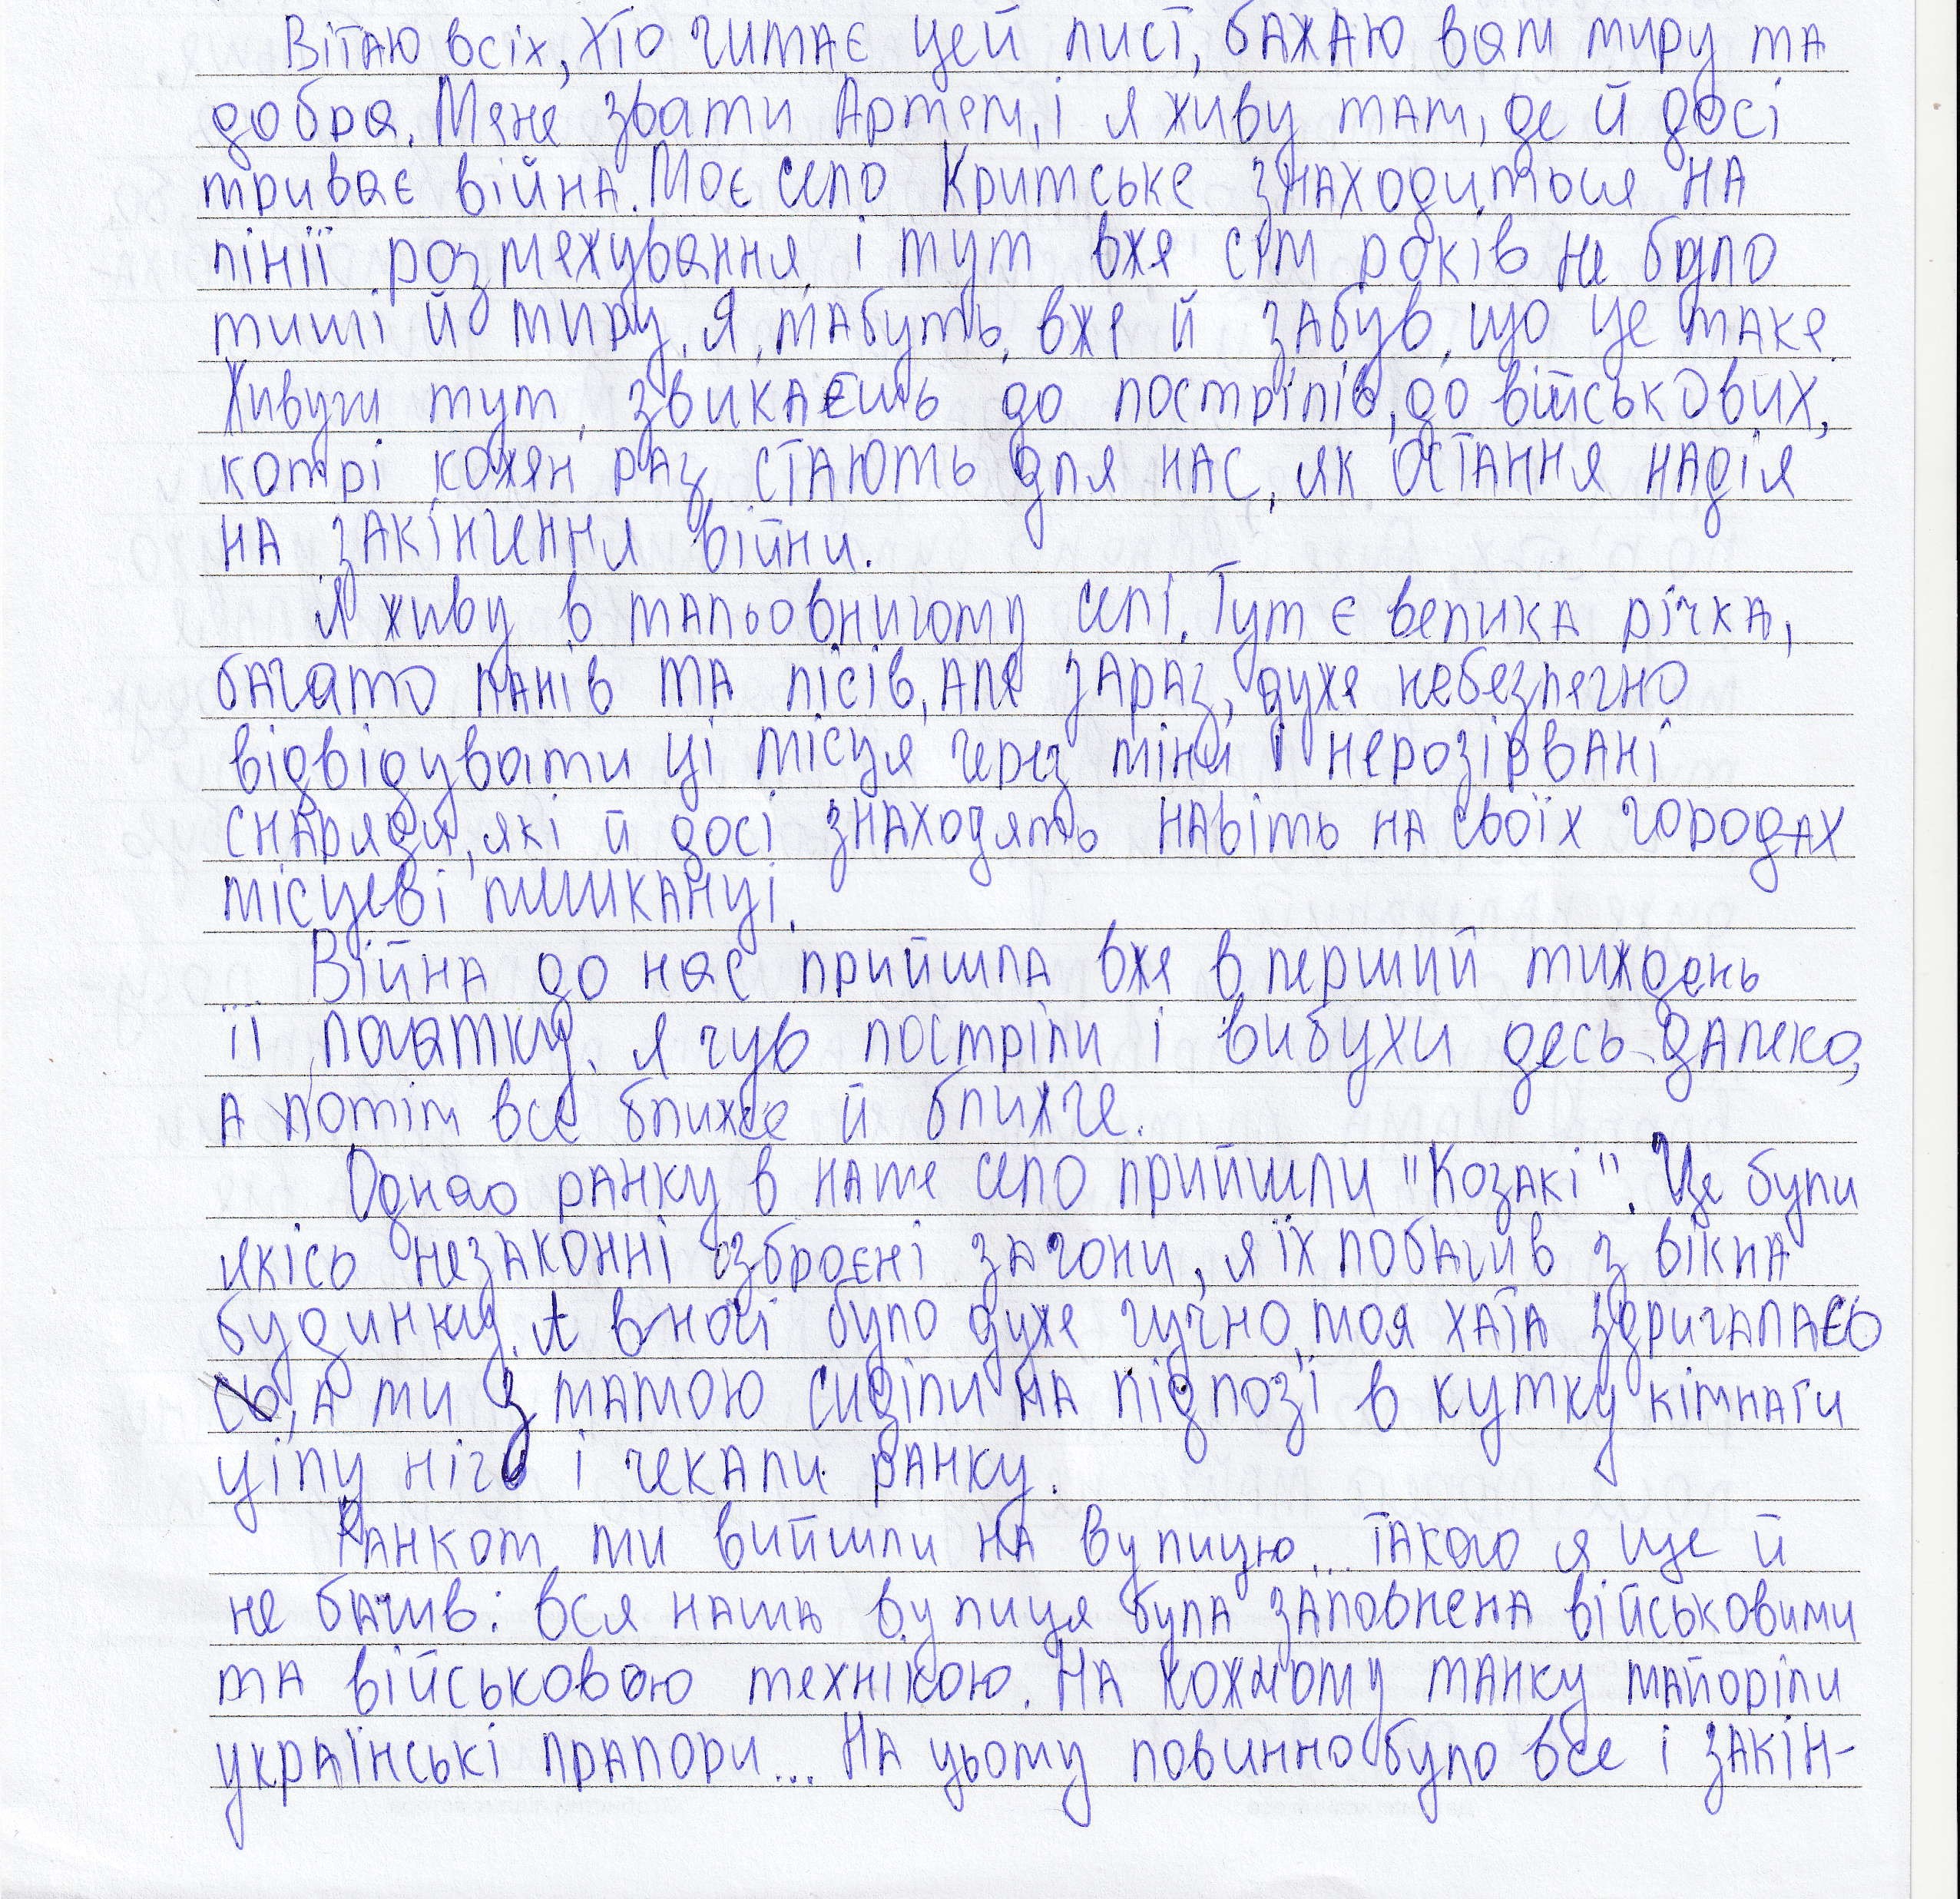 Вітаю всіх, хто читає цей лист, бажаю вам миру та
добра. Мене звати Артем, і я живу там, де й досі
триває війна. Моє село Кримське знаходиться на
лінії розмежування, і тут вже сім років не було
тиші й миру. Я, мабуть, вже й забув, що це таке.
Живучи тут, звикаєшь до пострілів, до військових,
котрі кожен раз стають для нас, як остання надія
на закінчення війни.
Я живу в мальовничому селі. Тут є велика річка,
багато ланів та лісів, але зараз, дуже небезпечно
відвідувати ці місця через міни і нерозірвані
снаряди, які й досі знаходять навіть на своїх городах
місцеві мешканці.
Війна до нас прийшла вже в перший тиждень
її початку. Я чув постріли і вибухи десь далеко,
а потім все ближче й ближче.
Одного ранку в наше село прийшли "Козакі". Це були
якісь незаконні озброєні загони, я їх побачив з вікна
будинку. А вночі було дуже гучно, моя хата здригалась
, а ми з мамою сиділи на підлозі в кутку кімнати
цілу ніч і чекали ранку.
Ранком ми вийшли на вулицю... такого я ще й
не бачив: вся наша вулиця була заповнена військовими
та військовою технікою. На кожному танку майоріли
українські прапори... На цьому повинно було все і закін-